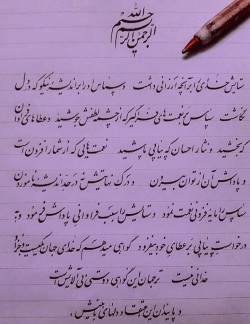 بسم الله الرحمن الرحیم
ستایش خدای را بر آنچه ارزانی داشت و سپاس او را بر اندیشه نیکو که در دل
نگاشت سپاس بر نعمت های فراگیر که از چشمه لطفش جوشید و عطاهای فراوان
که بخشید و نثار احسان که پیاپی پاشید نعمت هایی که از شمار افزون است
و پاداش آن از توان بیرون و درک نهایتش نه در حد اندیشه ناموزون
سپاس را مایه فزونی نعمت نمود و ستایش را سبب فراوانی پاداش فرمود و به
درخواست پیاپی بر عطای خود بیفزود گواهی می دهم که خدای جهان یکیست و جز او
خدائی نیست ترجمان این گواهی دوستی بی آلایش است
و پایندان این اعتقاد دلهای با بینش